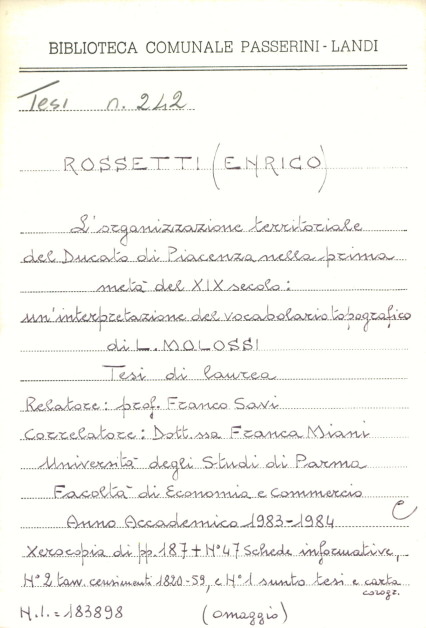 BIBLIOTECA COMUNALE PASSERINI-LANDI
Tesi n. 242
ROSSETTI (ENRICO)
L'organizzazione territoriale
del Ducato di Piacenza nella prima
metà del XIX secolo:
un'interpretazione del vocabolario topografico
di L. MOLOSSI
Tesi di laurea
Relatore: prof. Franco Savi
Correlatore: Dott.ssa Franca Miani
Università degli Studi di Parma
Facoltà di Economia e commercio
Anno Accademico 1983-1984
Xerocopia di pp. 187 + N° 47 Schede informative,
N° 2 tav. censimenti 1820-59, e N° 1 sunto tesi e carta
corogr.
N.I. = 183898 (omaggio)